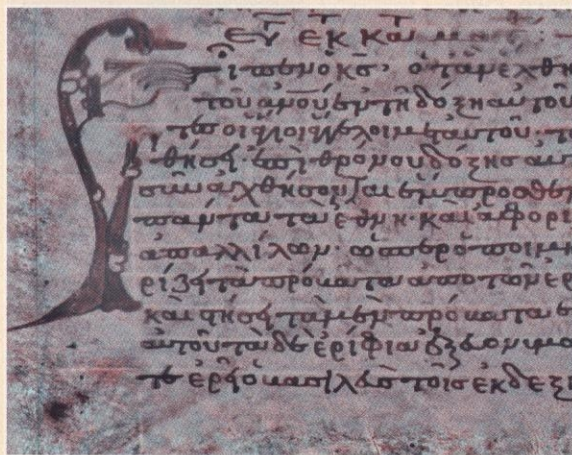 ΕΥ ΕΚ ΚΑΤ
ἶπεν ὁ κς· ὅταν ἔλθη
τοῦ ἀνοῦ ἐν τῆ δόξη αὐτοῦ
τες οἱ ἅγιοι ἄγγελοι μετ αὐτοῦ· το
θήσει ἐπὶ θρόνου δόξης αὐτ
συναχθήσονται ἔμπροσθεν
πάντα τὰ ἔθνη· καὶ ἀφορι
ἀπ αλλίλων· ὥσπερ ὁ ποιμη
ρίζει τὰ πρόβατα ἀπο τῶν ἐρ
καὶ στήσει τὰ μὲν πρόβατα ε
αὐτοῦ τὰ δὲ ἐρίφια ἐξ εὐονιμο
τε ἐρεῖ ὁ βασιλεὺς τοῖς ἐκ δεξι